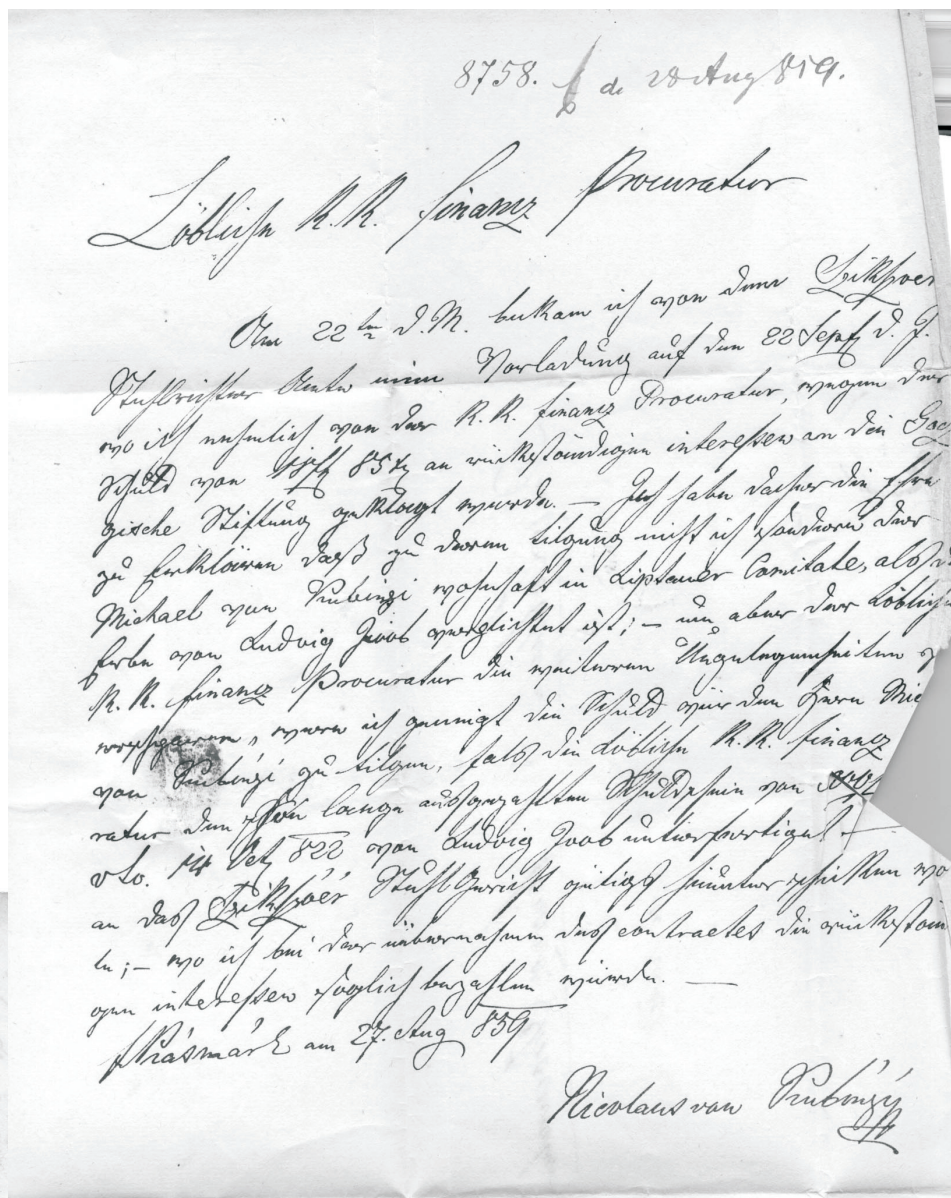 8758. de 28 Aug 859.
Löbliche K. K. Finanz Procuratur
Am 22ten d. M. bekam ich von dem Szikszoer
Stuhlrichter Amte eine Vorladung auf den 22 Sept d. J.
wo ich nehmlich von der K. K. Finanz Procuratur, wegen der
Schuld von 85 an rückständigen interessen an die
gische Stiftung geklagt wurde. — Ich habe dacher die Ehre
zu Erklären daß zu deren tilgung nicht ich sondern der
Michael von Kubinyi wohnhaft in Liptauer Comitate, als
Erbe von Ludvig Joób verpflichtet ist; — um aber der Löblichen
K. K. Finanz Procuratur die weiteren Ungelegenheiten
ich geneigt die Schuld vür den Herrn Mic
von Kubinyi zu tilgen, fals die Löbliche K. K. Finanz
ratur den schon lange ausgezahlten Schuldschein von
dto. 14 Oct 822 von Ludvig Joob unterfertiget —
an das Szikszóer Stuhlgericht gütigst hinunter schikken wo
te; — wo ich bei der übernahme des contractes die rückstän
gen interessen soglich bezahlen würde. —
am 27. Aug 859
Nicolaus von Kubinyi